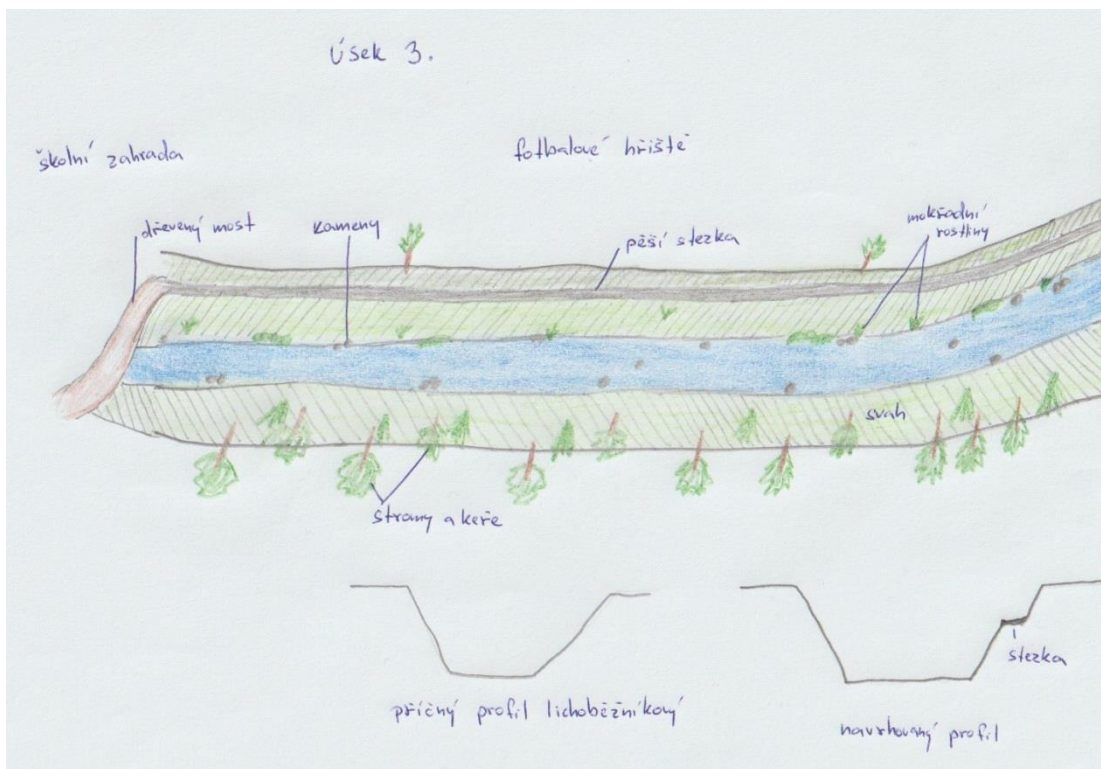 Úsek 3.
školní zahrada
fotbalové hřiště
dřevený most
kameny
pěší stezka
mokřadní
rostliny
svah
stromy a keře
stezka
příčný profil lichoběžníkový
navrhovaný profil